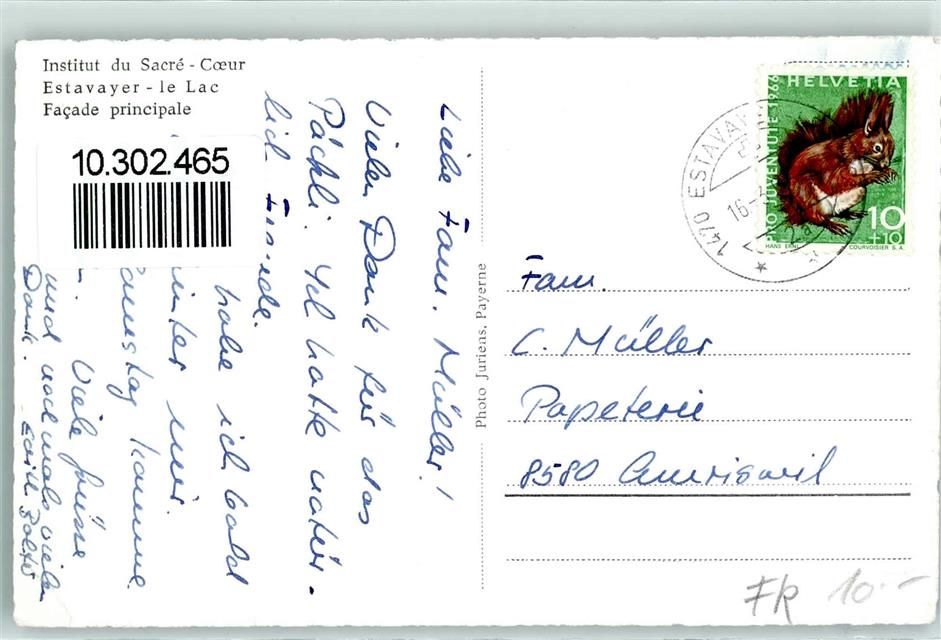 Institut du Sacré-Cœur
Estavayer-le Lac
Façade principale
10.302.465
Liebe Fam. Müller!
Vielen Dank für das
Päckli. Ich hatte natür-
lich Freude.
habe ich bald
hinter mir.
Samstag komme
Viele Grüsse
und nochmals vielen
Dank.
Photo Juriens, Payerne
HELVETIA
PRO JUVENTUTE 1966
10
+10
HANS ERNI
COURVOISIER S.A.
1470 ESTAVAYE
16.-3
Fam.
C. Müller
Papeterie
8580 Amriswil
FR 10.-